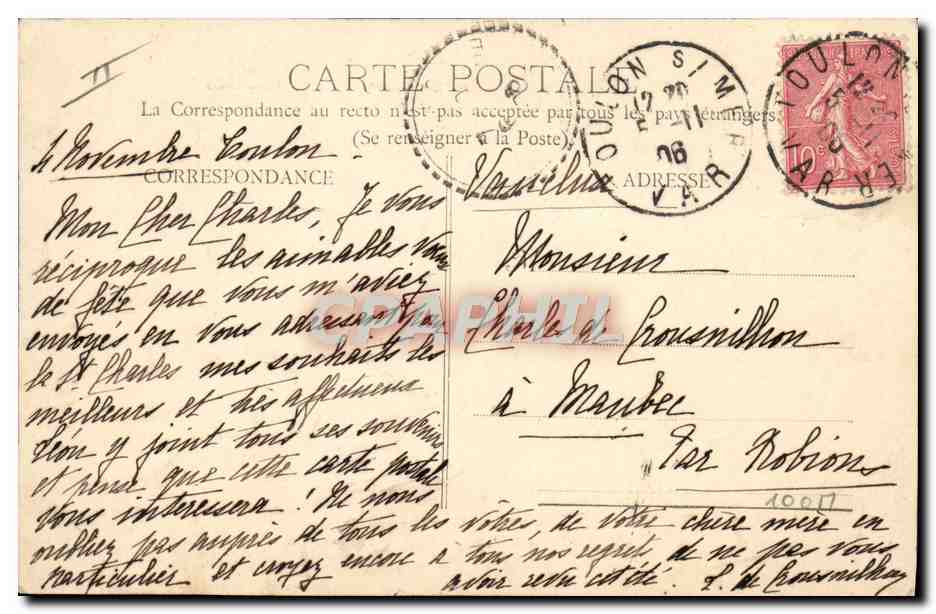 CARTE POSTALE
La Correspondance au recto n'est pas acceptée par tous les pays étrangers
(Se renseigner à la Poste)
CORRESPONDANCE
ADRESSE
TOULON S/MER
12
5 11
06
VAR
TOULON
VAR
MER
10c
4 Novembre Toulon.
Mon Cher Charles, Je vous
réciproque les aimables vœux
de fête que vous m'aviez
envoyés en vous adressant pour
la St Charles mes souhaits les
meilleurs et très affectueux
Léon y joint tous ses souvenirs
et pense que cette carte postale
vous intéressera! Ne nous
oubliez pas auprès de tous les vôtres, de votre chère mère en
particulier et croyez encore à tous nos regrets de ne pas vous
avoir revu cet été. L. de Crousnilhon
Vaucluse
Monsieur
Charles de Crousnilhon
à Maubec
Par Robions
CPAPHIL